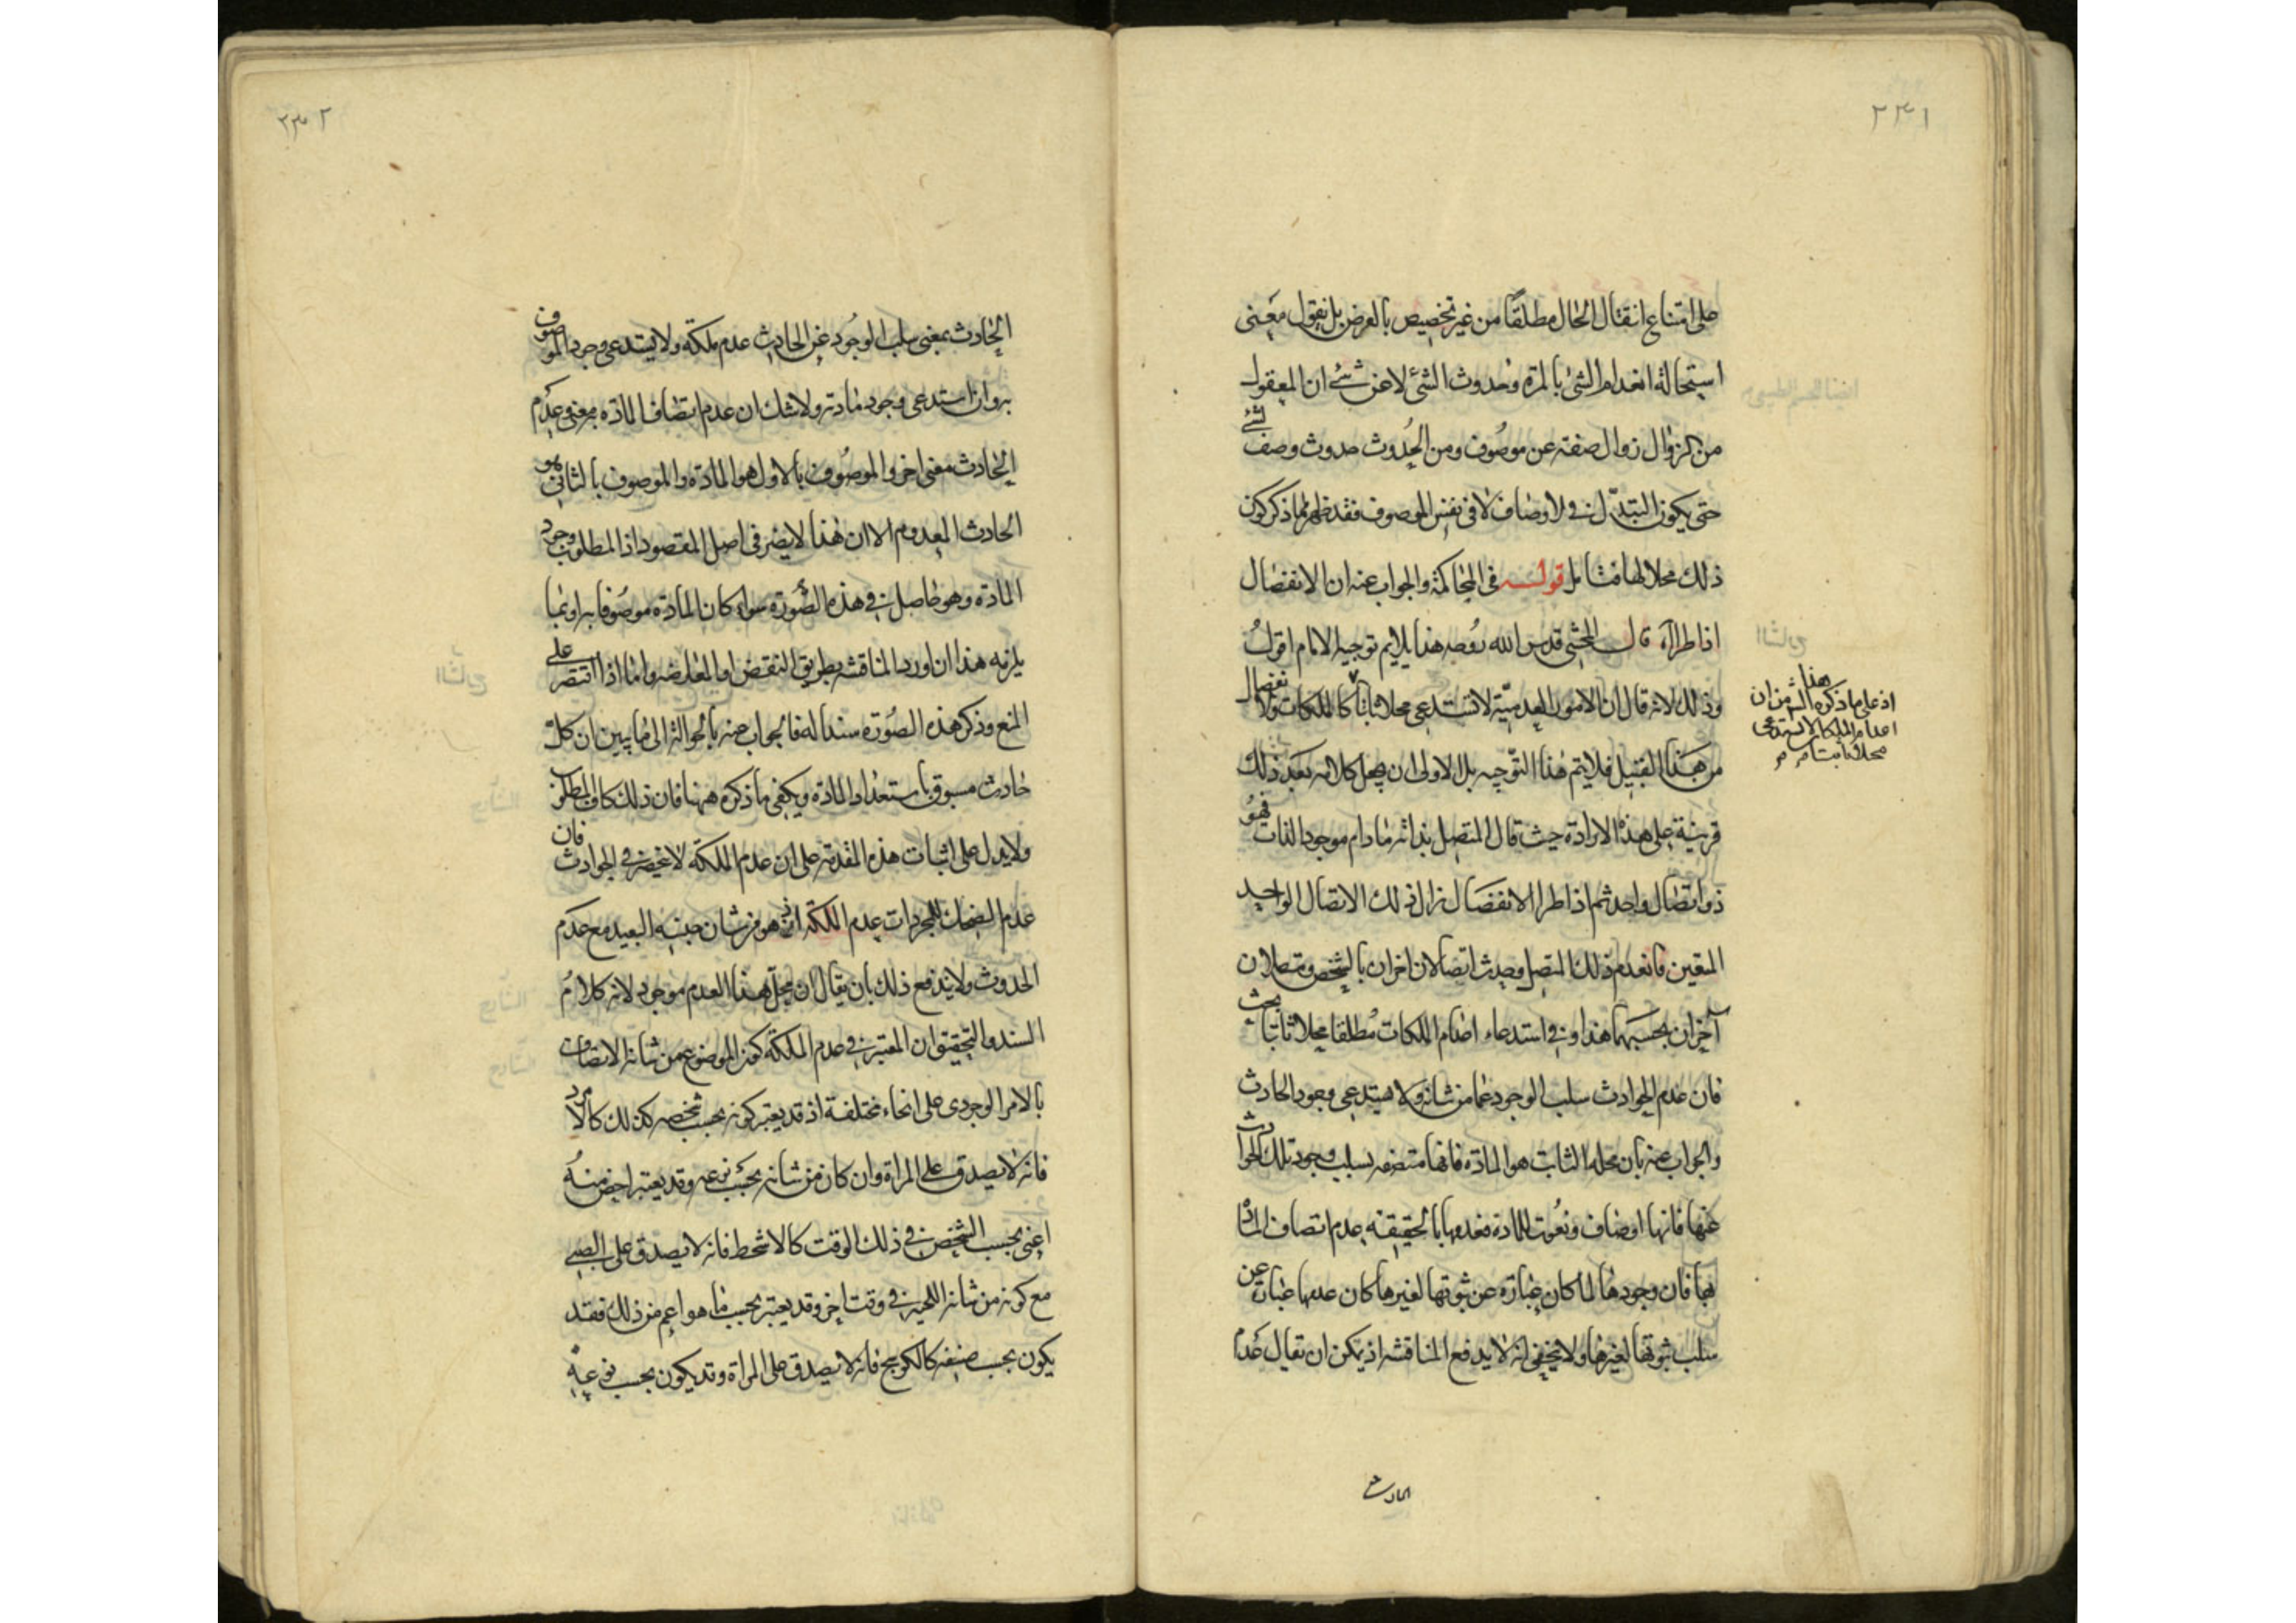 ٢٣١
على امتناع انتقال الحال مطلقًا من غير تخصيص بالعرض بل نقول معنى
استحالة انعدام الشئ بالمرة وحدوث الشئ لا عن شئ ان المعقول
من الزوال زوال صفته عن موصوف ومن الحدوث حدوث وصف لشئ
حتى يكون التبدّل فى الاوصاف لا فى نفس الموصوف فقد ظهر مما ذكر كون
ذلك محلا لها فتامل قوله فى المحاكمة والجواب عنه ان الانفصال
اذا طرا آه قال المحشى قدس الله روحه هذا يلايم توجيه الامام اقول
وذلك لانه قال ان الامور العدميّة لا تستدعى محلا ثابتا كالملكات والانفصال
من هذا القبيل فلا يتم هذا التوجيه بل الاولى ان يجعل كلامه بعد ذلك
قرينة على هذه الارادة حيث قال المتصل بذاته ما دام موجود الذات فهو
ذو اتصال واحد ثم اذا طرا الانفصال زال ذلك الاتصال الواحد
المعين فانعدم ذلك المتصل وحدث اتصالان اخران بالشخص ومتصلان
آخران بحسبهما هذا وفى استدعاء اعدام الملكات مطلقا محلا ثابتا بحث
فان عدم الحوادث سلب الوجود عما من شانه ولا يستدعى وجود الحادث
والجواب عنه بان محله الثابت هو المادة فانها متصفه بسلب وجود تلك الحوادث
عنها فانها اوصاف ونعوت للمادة فعدمها بالحقيقة عدم اتصاف المادة
بها فان وجودها لما كان عبارة عن ثبوتها لغيرها كان عدمها عبارة عن
سلب ثبوتها لغيرها ولا يخفى انه لا يدفع المناقشه اذ يمكن ان يقال عدم
هذا
اذ على ما ذكره الش من ان
اعدام الملكات لا تستدعى
محلا ثابتا
الحادث
٢٣٢
الحادث بمعنى سلب الوجود عن الحادث عدم ملكة ولا يستدعى وجود الموصوف
به وان استدعى وجود مادته ولا شك ان عدم اتصاف المادة به معنى وعدم
الحادث معنى اخر والموصوف بالاول هو المادة والموصوف بالثانى هو
الحادث المعدوم الا ان هذا لا يضر فى اصل المقصود اذ المطلوب وجود
المادة وهو حاصل فى هذه الصورة سواء كان المادة موصوفا به او بما
يلزمه هذا ان اورد المناقشه بطريق النقض او المعارضه واما اذا اقتصر على
المنع وذكر هذه الصورة سندا له فالجواب عنه بالحوالة الى ما يبين ان كل
حادث مسبوق باستعداد المادة ويكفى ما ذكره ههنا فان ذلك كاف للمطلوب
ولا يدل على اثبات هذه المقدمة على ان عدم الملكة لا ينحصر فى الحوادث فان
عدم الضحك للمجردات عدم الملكة اذ هو من شان جنسه البعيد مع عدم
الحدوث ولا يندفع ذلك بان يقال ان محل هذا العدم موجود لانه كلام
السند والتحقيق ان المعتبر فى عدم الملكة كون الموضوع من شانه الاتصاف
بالامر الوجودى على انحاء مختلفة اذ قد يعتبر كونه بحسب شخصه كذلك كالامرد
فانه لا يصدق على المراة وان كان من شانه بحسب نوعه وقد يعتبر اخص منه
اعنى بحسب الشخص فى ذلك الوقت كالاشحط فانه لا يصدق على الصبى
مع كونه من شانه اللحية فى وقت اخر وقد يعتبر بحسب ما هو اعم من ذلك فقد
يكون بحسب صنفه كالكوسج فانه لا يصدق على المراة وقد يكون بحسب نوعه